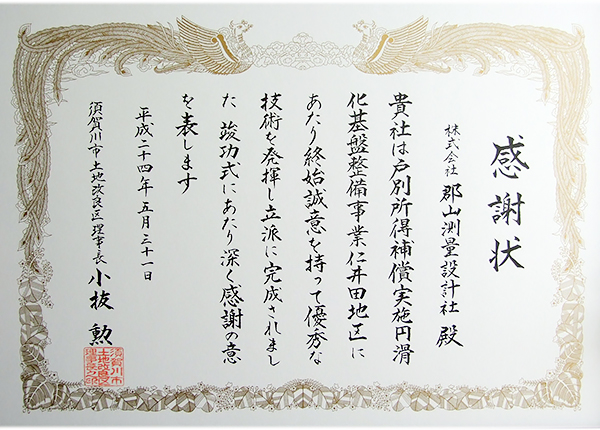 感謝状
株式会社 郡山測量設計社 殿
貴社は戸別所得補償実施円滑
化基盤整備事業仁井田地区に
あたり終始誠意を持って優秀な
技術を発揮し立派に完成されまし
た 竣功式にあたり深く感謝の意
を表します
平成二十四年五月三十一日
須賀川市土地改良区理事長 小枝 勲
須賀川市
土地改良区
理事長之印